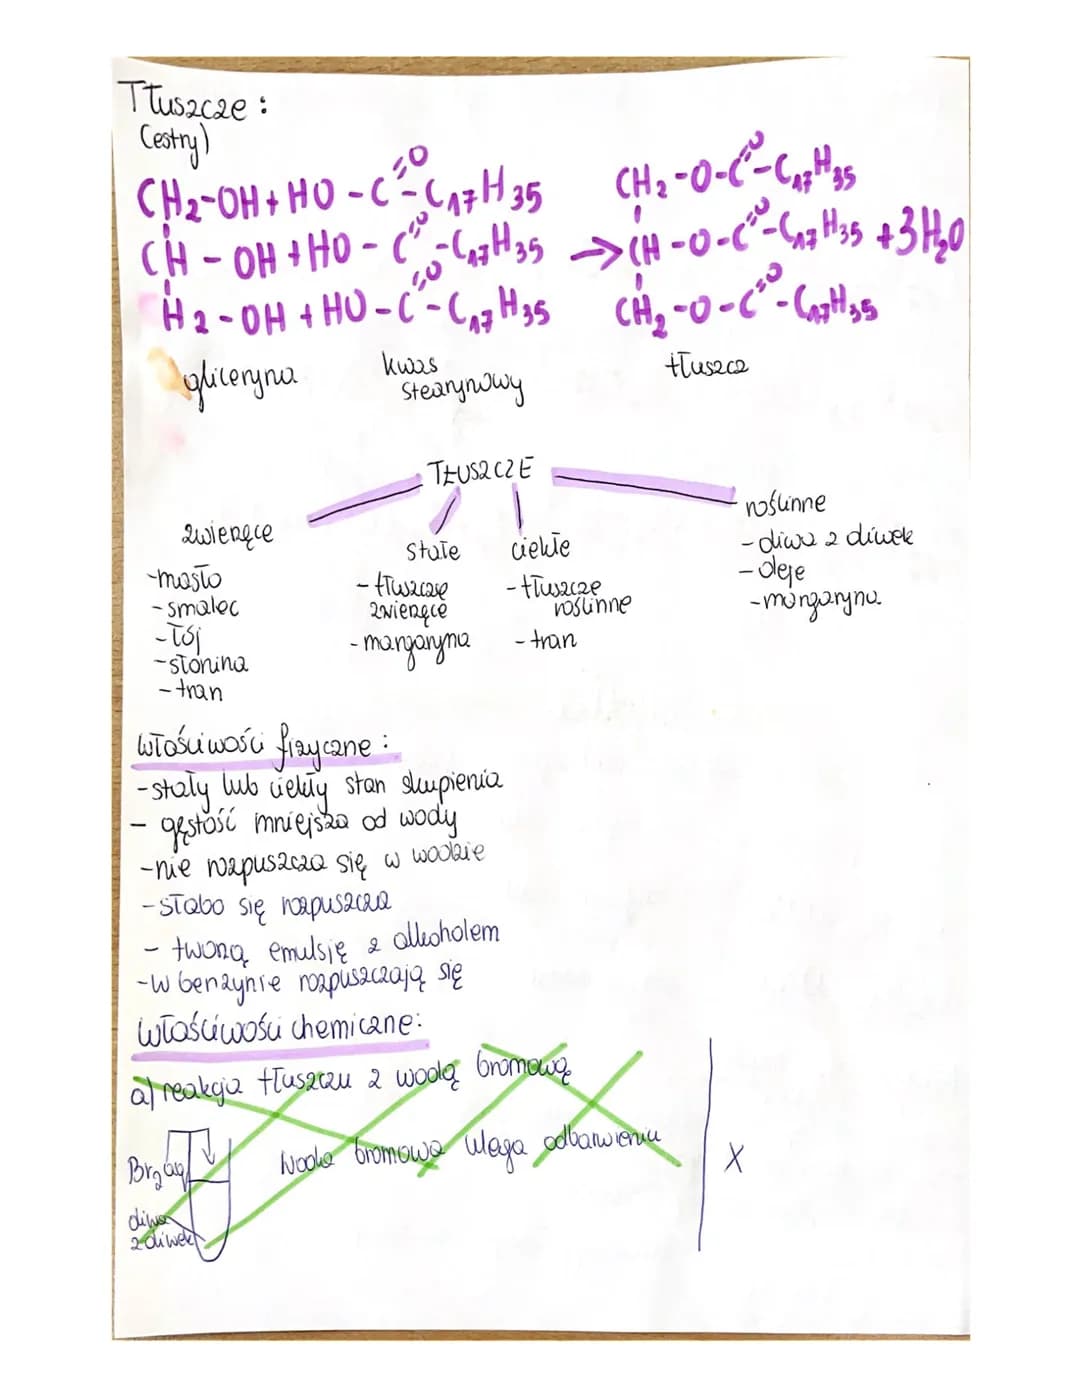 Tłuszcze :
(estry)
CH2-OH + HO - C=O - C17H35   CH2-O-C=O-C17H35
CH - OH + HO - C=O - C17H35 → CH -O-C=O-C17H35 + 3H2O
H2-OH + HO - C=O - C17H35   CH2-O-C=O-C17H35
gliceryna   kwas stearynowy   tłuszcz
TŁUSZCZE
zwierzęce
-masło
-smalec
-łój
-słonina
-tran
stałe
-tłuszcze
zwierzęce
-margaryna
ciekłe
-tłuszcze
roślinne
-tran
roślinne
-oliwa z oliwek
-oleje
-margaryna
właściwości fizyczne :
-stały lub ciekły stan skupienia
- gęstość mniejsza od wody
-nie rozpuszcza się w wodzie
-słabo się rozpuszcza
- tworzą emulsję z alkoholem
-w benzynie rozpuszczają się
właściwości chemiczne:
a) reakcja tłuszczu z wodą bromową
Br2 aq
oliwa
z oliwek
woda bromowa ulega odbarwieniu
X